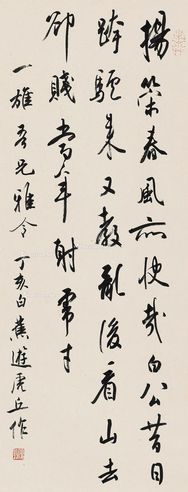 揚策春風亦快哉白公昔日
跨驢來又教亂後看山去
卻賤當年射虎才
一雄吾兄雅令 丁亥白蕉遊虎丘作